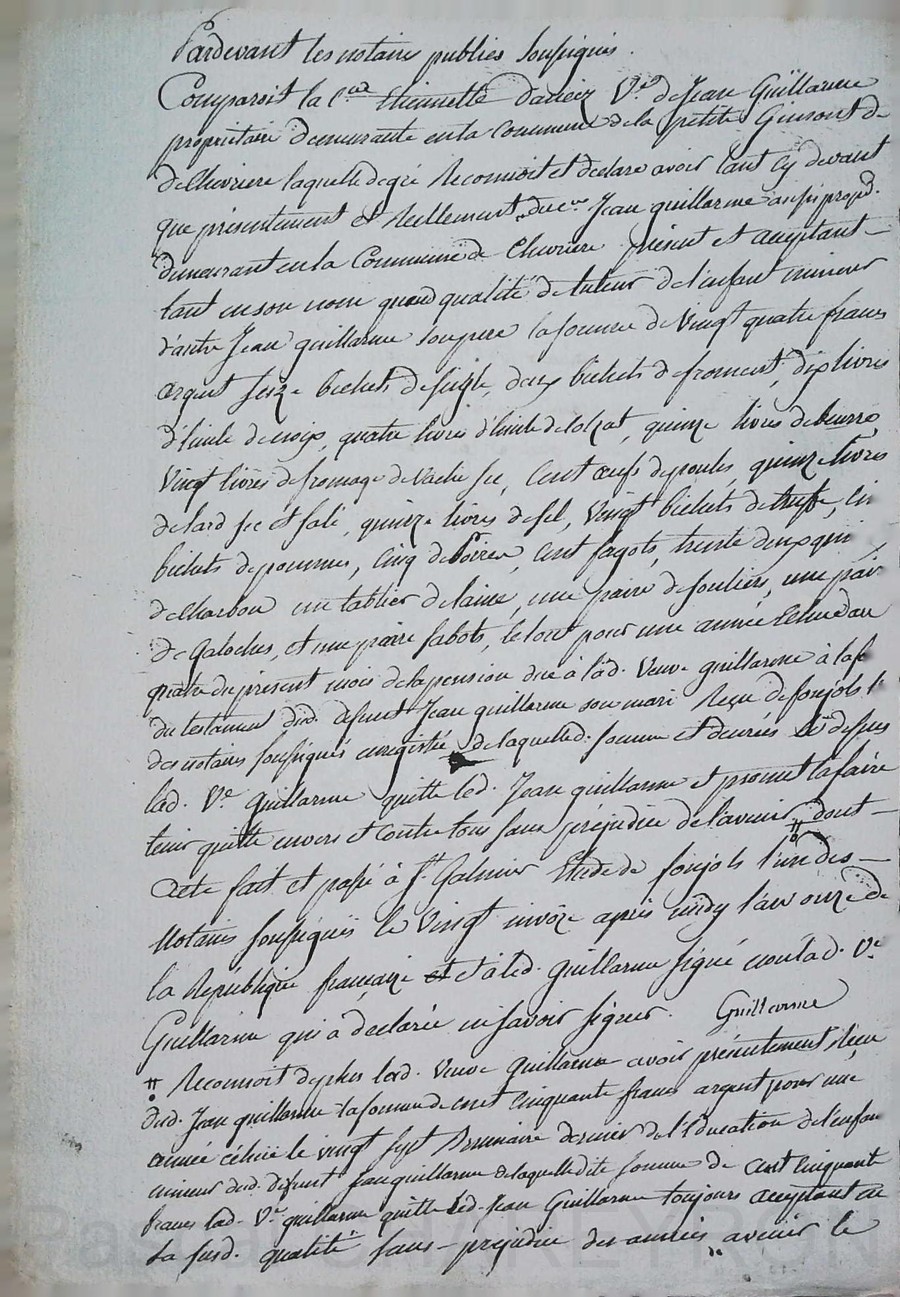 Pardevant les notaires publics soussignés.
Comparoit la C.ne Etiennette Ve. de Jean Guillarme
propriétaire demeurante en la commune de la petite Gimont de
de Chevriere laquelle de gré Reconnoit et declare avoir tant cy devant
que présentement et Réellement du cen Jean guillarme aussi propre.
demeurant en la Commune de Chevriere présent et acceptant
tant en son nom quen qualité de tuteur de l'enfant mineur
d'autre Jean guillarme son pere la somme de Vingt quatre francs
argent seize bichets de seigle, deux bichets de froment, dix livres
d'huile de noix, quatre livres d'huile de colzat, quinze livres de beurre,
Vingt livres de fromage de Vache sec, Cent œufs de poules, quinze livres
de lard sec et salé, quinze livres de sel, Vingt bichets de truffe,
bichets de pommes, Cinq de poires, Cent fagots, trente deux
de Charbon un tablier de laine, une paire de souliers, une pair
de Galoches, et une paire sabots, le tout pour une année Echue au
quatre du présent mois de la pension due à lad. Veuve guillarme à la
du testament dud. defunt Jean guillarme son mari Reçu de fonjols l'
des notaires soussignés enregistrée de laquelle d. somme et denrées ci dessus
lad. Ve guillarme quitte led. Jean guillarme et promet la faire
tenir quitte envers et contre tous sans préjudice de l'avenir # dont
Acte fait et passé à St. Galmier Etude de fonjols l'un des
Notaires soussignés le Vingt nivôze après midy l'an onze de
la République française et a led. guillarme signé non lad. Ve
Guillarme qui a declarée ne savoir signer. Guillerme
# Reconnoit de plus lad. Veuve guillarme avoir présentement Reçu
dud. Jean guillarme la somme de cent Cinquante francs argent pour une
année échue le vingt sept Brumaire dernier de l'Education de l'enfan
mineur dud. defunt Jean guillarme de laquelle dite somme de Cent Cinquante
francs lad. Ve. guillarme quitte led. Jean Guillarme toujours acceptant en
sa susd. qualité sans préjudice des années avenir le